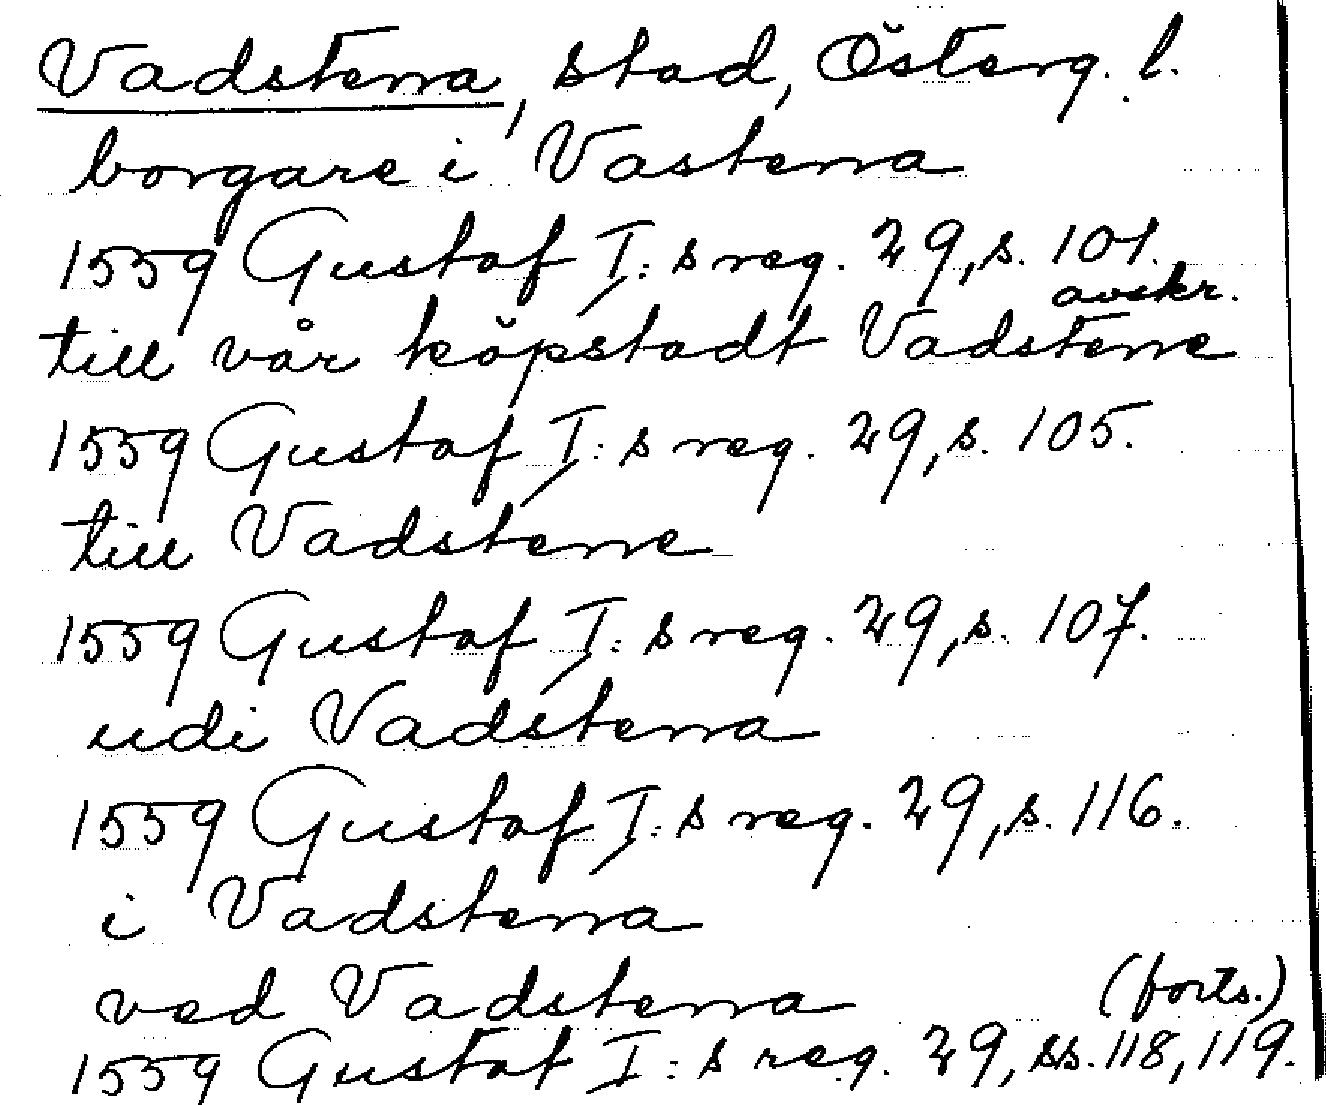 Vadstena, stad, Österg. l.
borgare i Vastena
1559 Gustaf I:s reg. 29, s. 101.
avskr.
till vår köpstadt Vadstene
1559 Gustaf I:s reg. 29, s. 105.
till Vadstene
1559 Gustaf I:s reg. 29, s. 107.
udi Vadstena
1559 Gustaf I:s reg. 29, s. 116.
i Vadstena
ved Vadstena (forts.)
1559 Gustaf I:s reg. 29, ss. 118, 119.